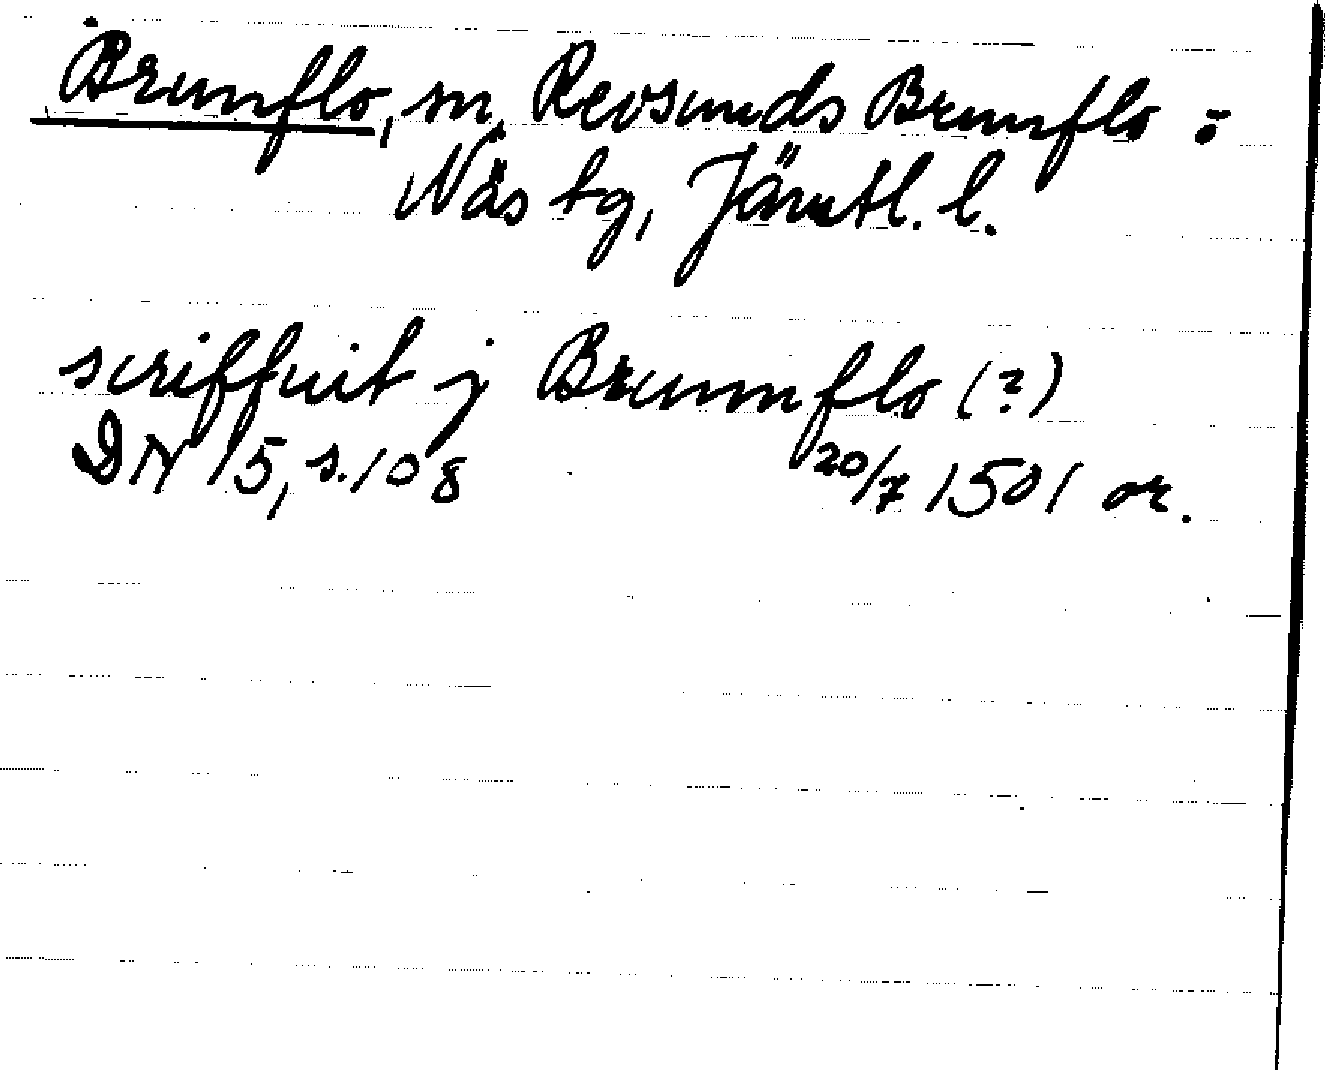 Brunflo, sn, Revsunds Brunflo o
Näs tg, Jämtl. l.
scriffuit j Brunnflo (?)
DN 15, s. 108 20/7 1501 or.